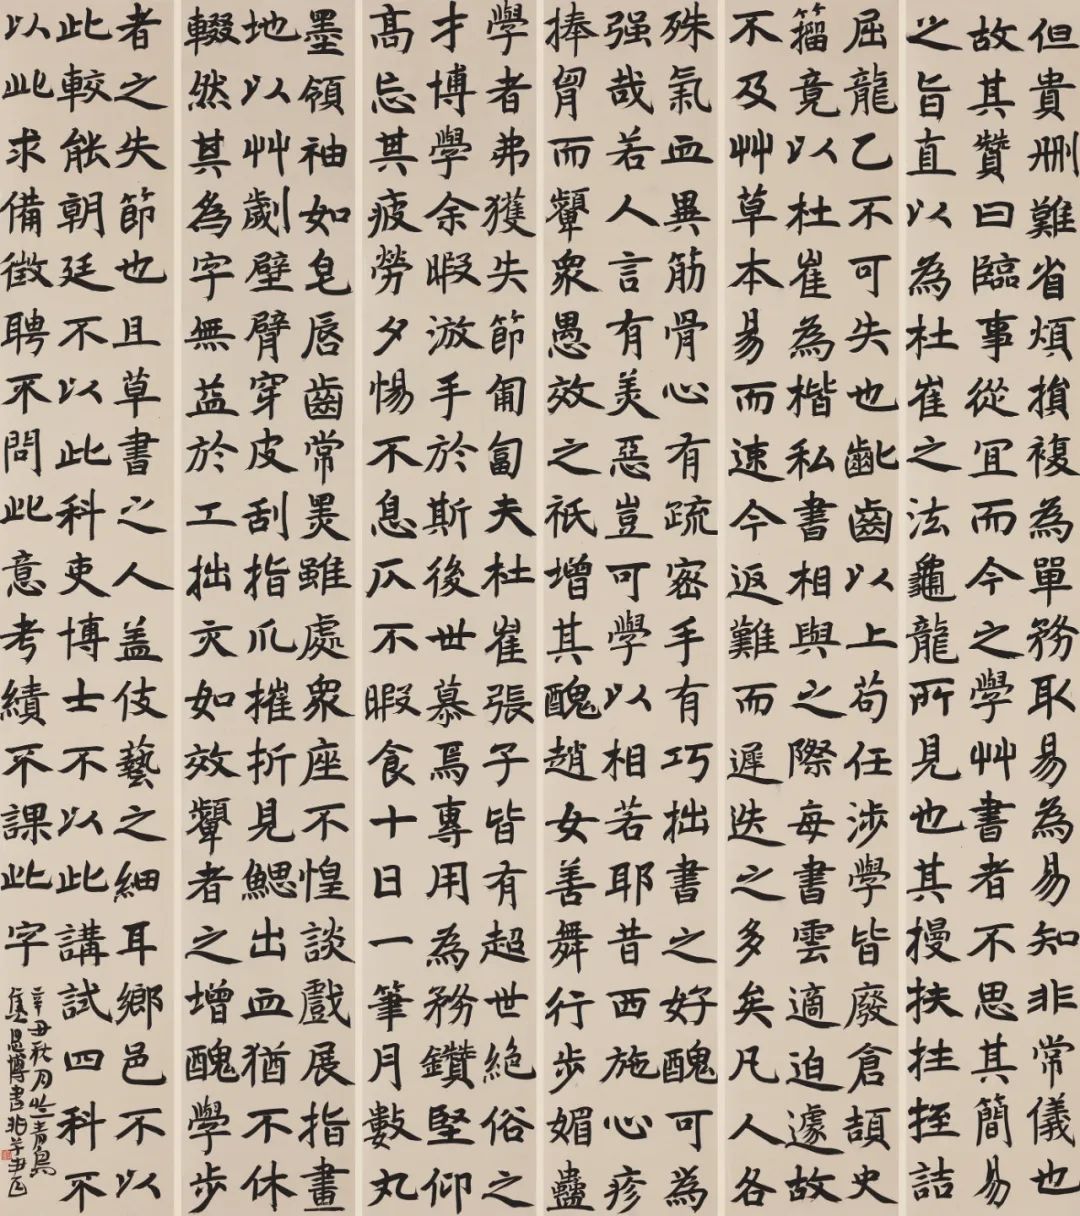 但貴刪難省煩損複為單務取易為易知非常儀也
故其贊曰臨事從宜而今之學艸書者不思其簡易
之旨直以為杜崔之法龜龍所見也其摱扶拄挃詰
屈龍乙不可失也齔齒以上苟任涉學皆廢倉頡史
籀竟以杜崔為楷私書相與之際每書雲適迫遽故
不及艸草本易而速今返難而遲迭之多矣凡人各
殊氣血異筋骨心有疏密手有巧拙書之好醜可為
强哉若人言有美惡豈可學以相若耶昔西施心疹
捧胷而顰衆愚效之祇增其醜趙女善舞行步媚蠱
學者弗獲失節匍匐夫杜崔張子皆有超世絕俗之
才博學余暇游手於斯後世慕焉專用為務鑽堅仰
高忘其疲勞夕惕不息仄不暇食十日一筆月數丸
墨領袖如皂唇齒常黑雖處衆座不惶談戲展指畫
地以艸劌壁臂穿皮刮指爪摧折見鰓出血猶不休
輟然其為字無益於工拙亦如效顰者之增醜學步
者之失節也且草書之人蓋伎藝之細耳鄉邑不以
此較能朝廷不以此科吏博士不以此講試四科不
以此求備徵聘不問此意考績不課此字
辛丑秋月於青島
恩博書非草